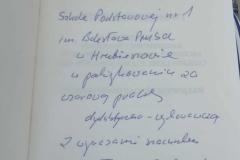 Szkole Podstawowej nr 1
im. Bolesława Prusa
w Hrubieszowie
w podziękowaniu za
wzorową pracę
dydaktyczno-wychowawczą
z wyrazami szacunku